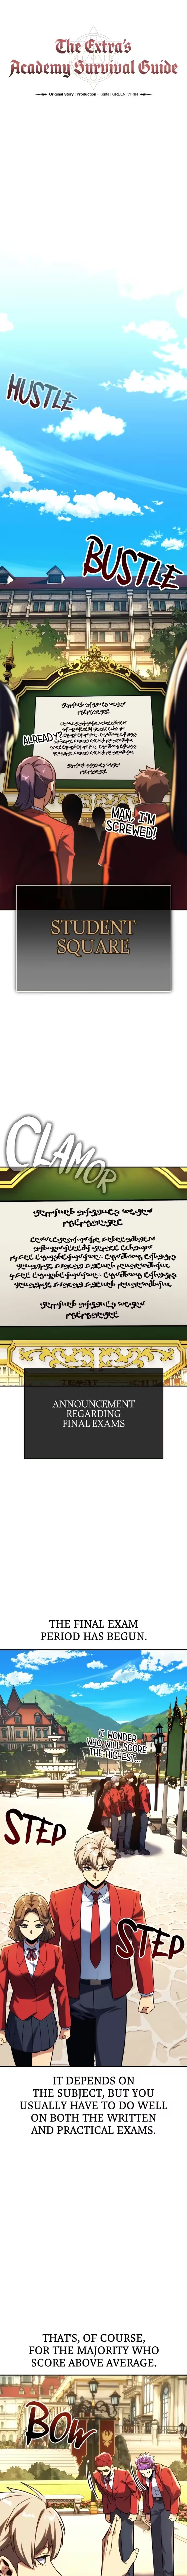 The Extra's
Academy Survival Guide
Original Story | Production · Korita | GREEN KYRIN
HUSTLE
BUSTLE
ALREADY?
MAN, I'M
SCREWED!
STUDENT
SQUARE
CLAMOR
ANNOUNCEMENT
REGARDING
FINAL EXAMS
THE FINAL EXAM
PERIOD HAS BEGUN.
I WONDER
WHO WILL SCORE
THE HIGHEST?
STEP
STEP
IT DEPENDS ON
THE SUBJECT, BUT YOU
USUALLY HAVE TO DO WELL
ON BOTH THE WRITTEN
AND PRACTICAL EXAMS.
THAT'S, OF COURSE,
FOR THE MAJORITY WHO
SCORE ABOVE AVERAGE.
BOW